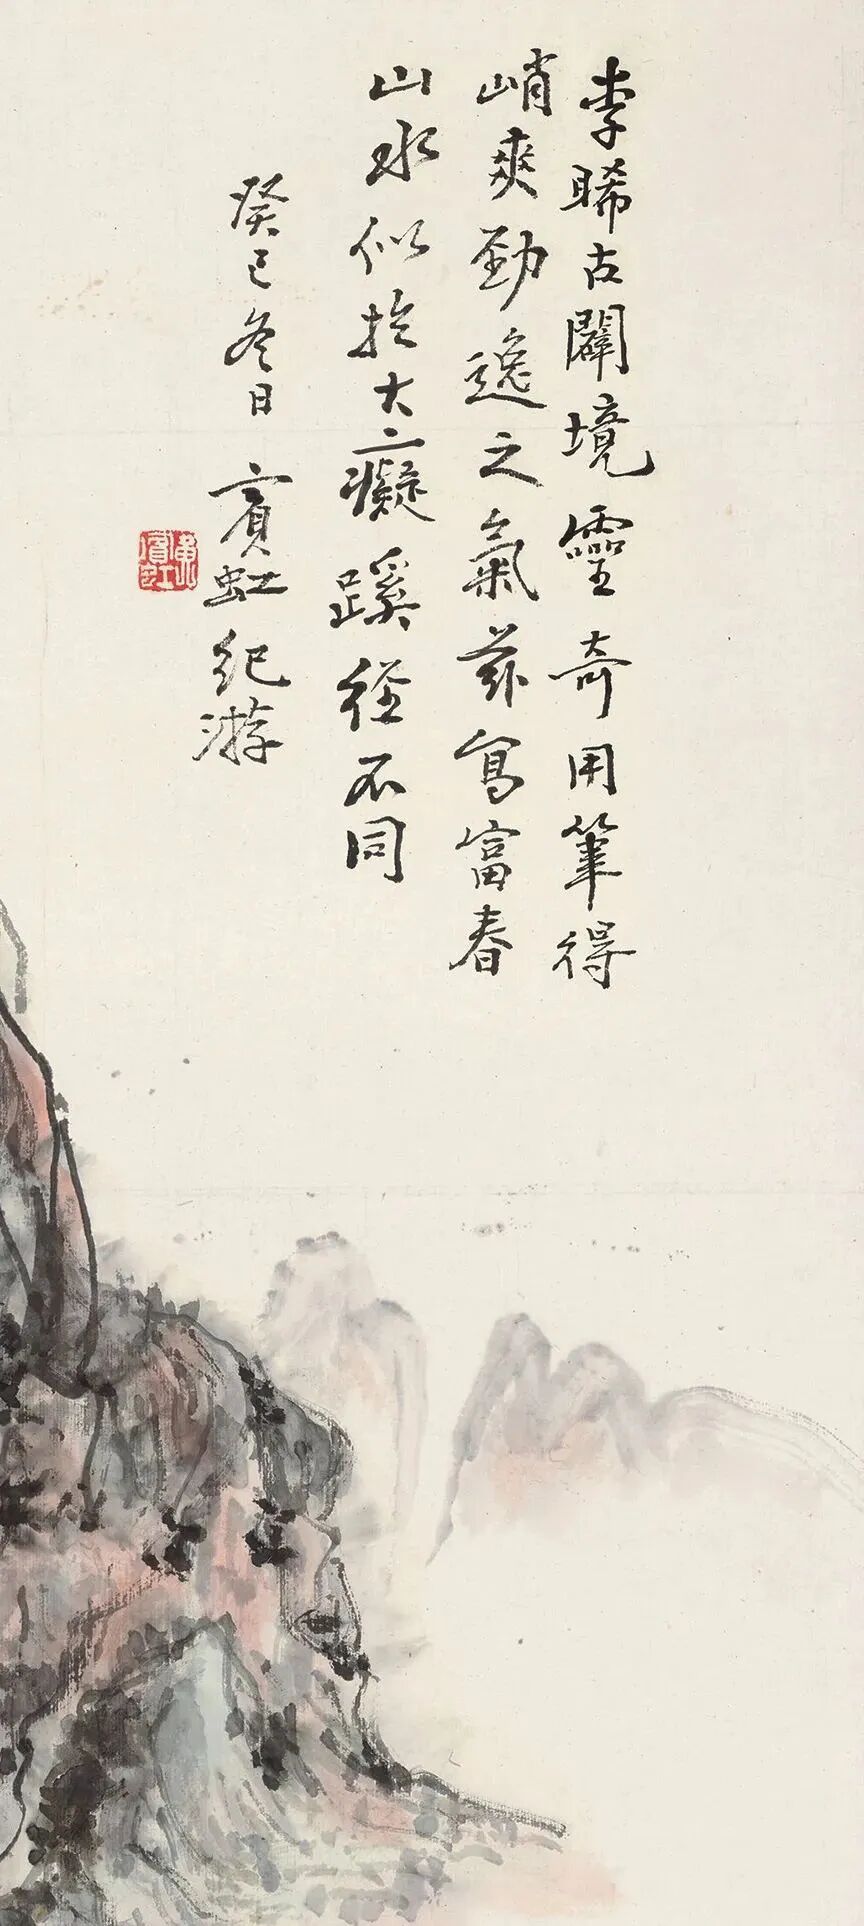 李晞古闢境靈奇用筆得
峭爽勁逸之氣茲寫富春
山水似於大癡蹊徑不同
癸巳冬日賓虹紀游
黃賓虹